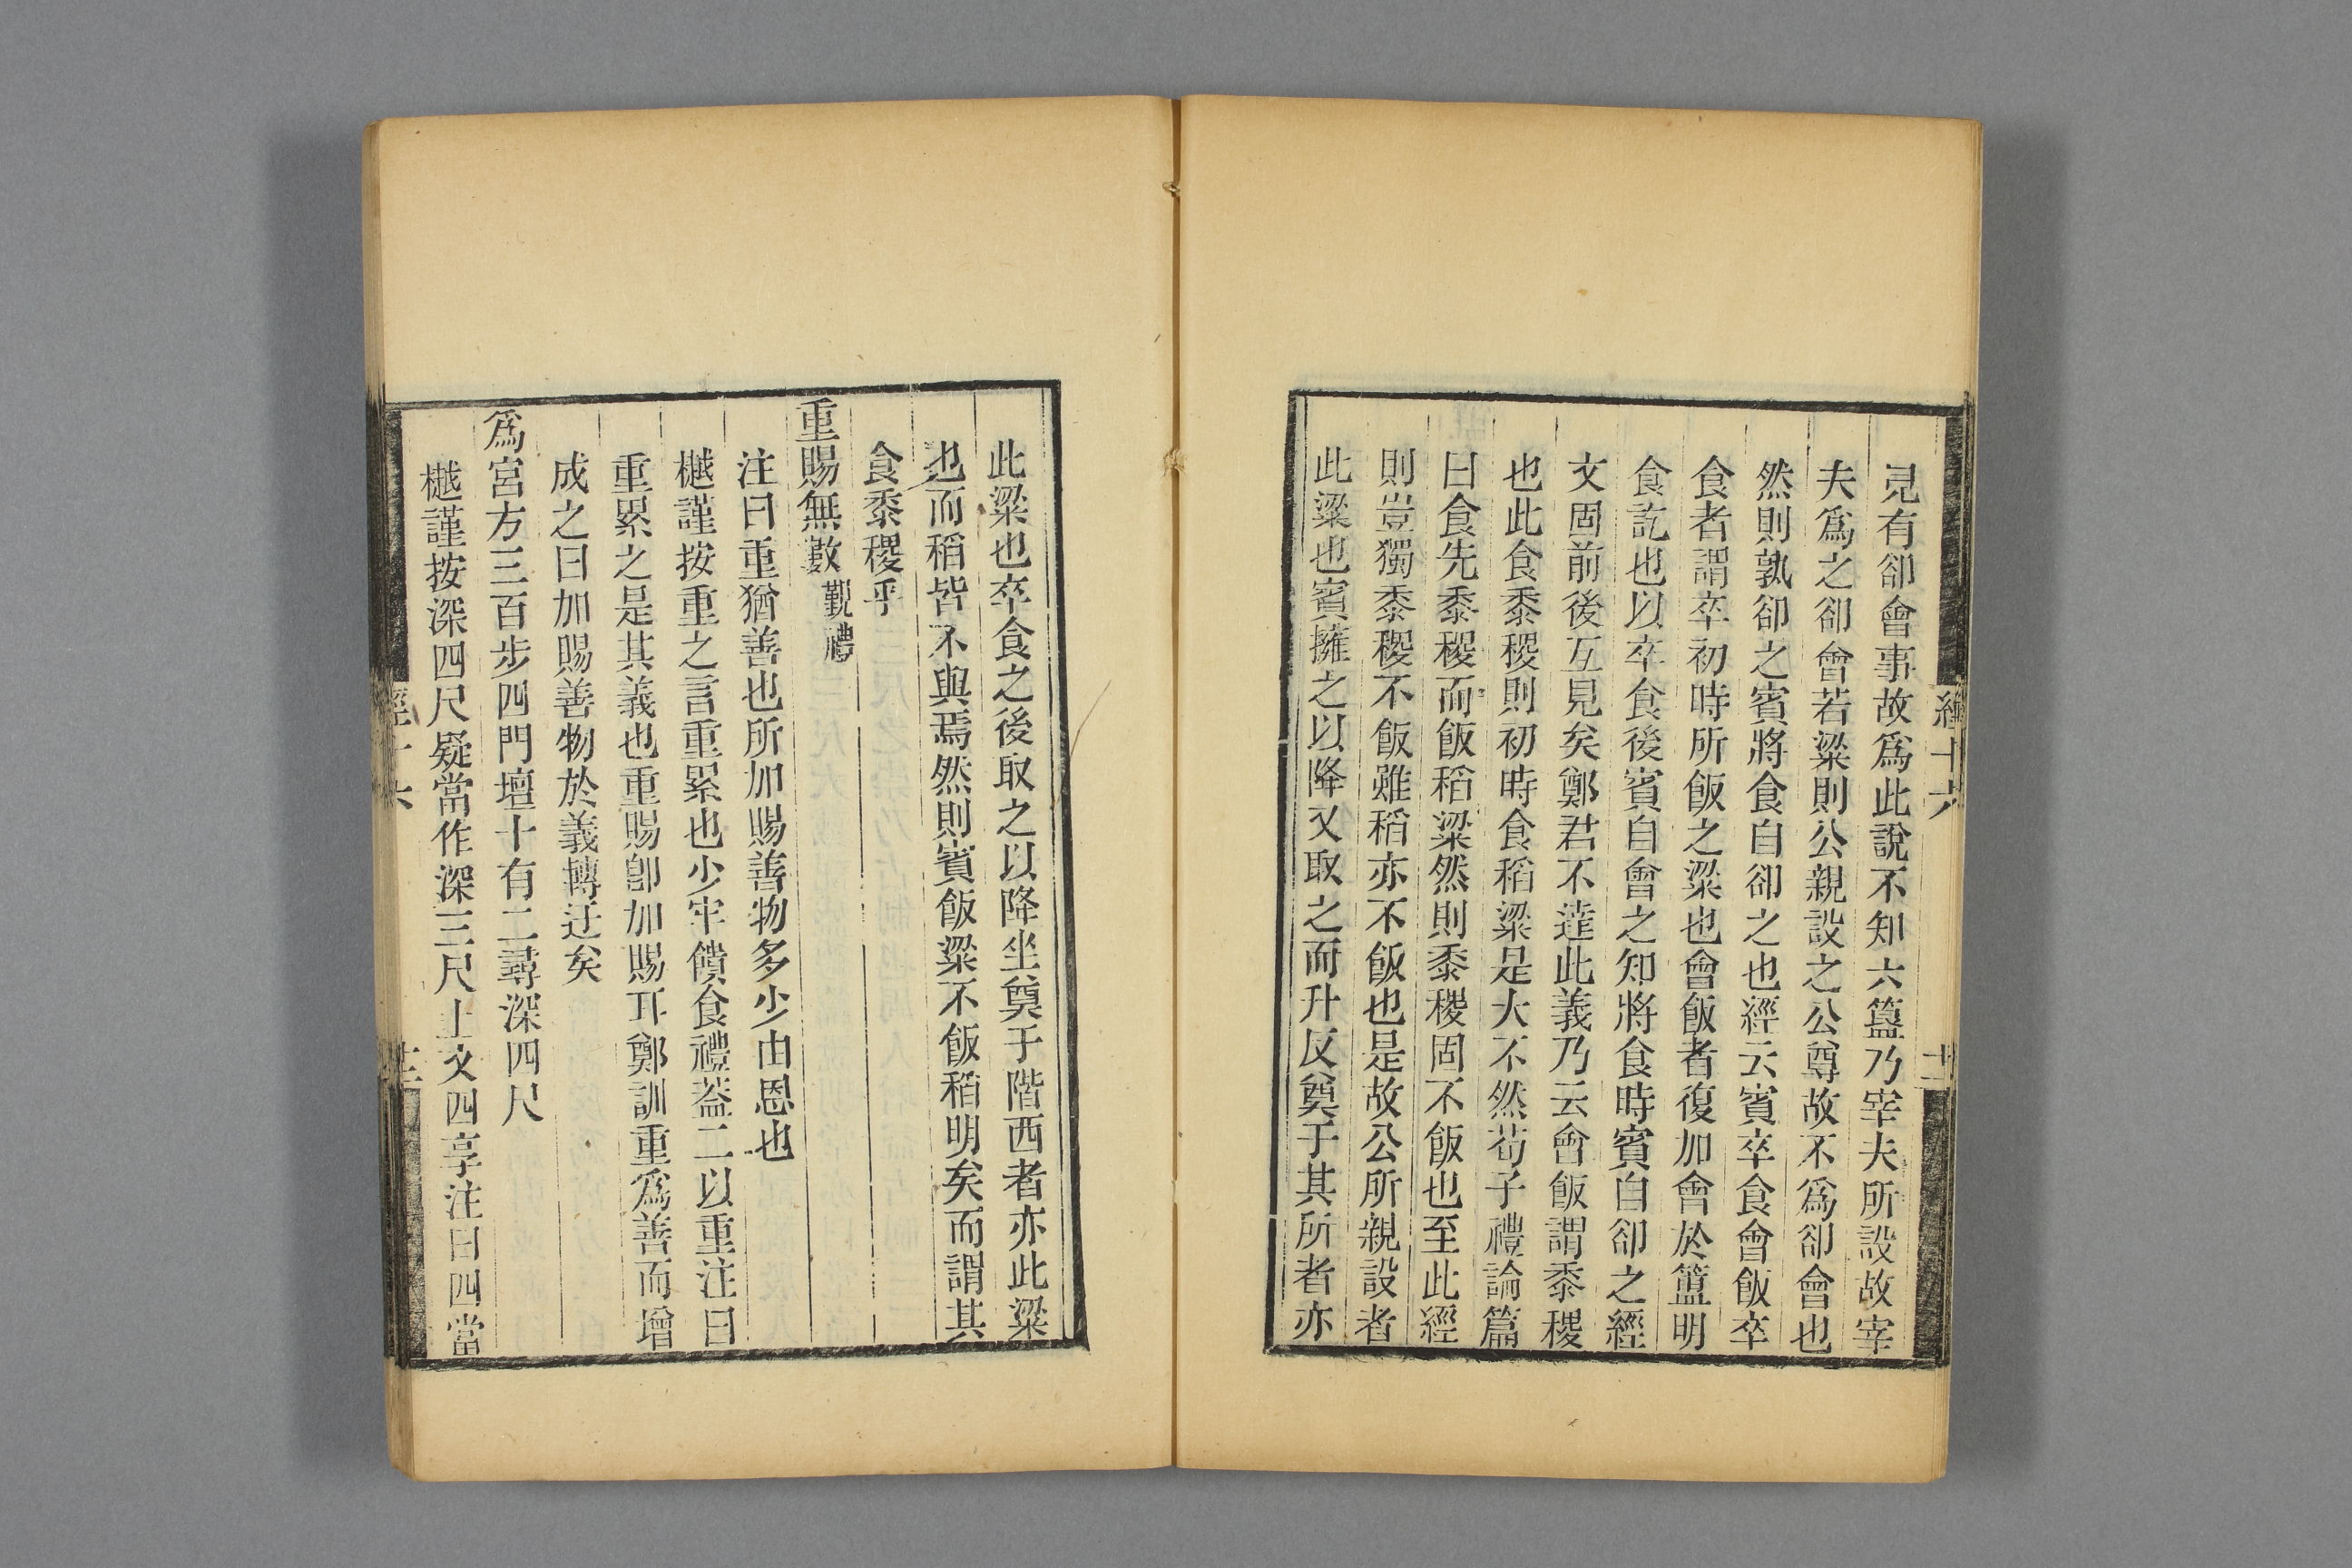 見有卻會事故爲此說不知六簋乃宰夫所設故宰
夫爲之卻會若粱則公親設之公尊故不爲卻會也
然則孰卻之賓將食自卻之也經云賓卒食會飯卒
食者謂卒初時所飯之粱也會飯者復加會於簠明
食訖也以卒食後賓自會之知將食時賓自卻之經
文固前後互見矣鄭君不達此義乃云會飯謂黍稷
也此食黍稷則初時食稻粱是大不然荀子禮論篇
曰食先黍稷而飯稻粱然則黍稷固不飯也至此經
則豈獨黍稷不飯雖稻亦不飯也是故公所親設者
此粱也賓擁之以降又取之而升反奠于其所者亦
經十六
十二
此粱也卒食之後取之以降坐奠于階西者亦此粱
也而稻皆不與焉然則賓飯粱不飯稻明矣而謂其
食黍稷乎
重賜無數覲禮
注曰重猶善也所加賜善物多少由恩也
樾謹按重之言重累也少牢饋食禮蓋二以重注曰
重累之是其義也重賜卽加賜耳鄭訓重爲善而增
成之曰加賜善物於義轉迂矣
爲宮方三百步四門壇十有二尋深四尺
樾謹按深四尺疑當作深三尺上文四享注曰四當
經十六